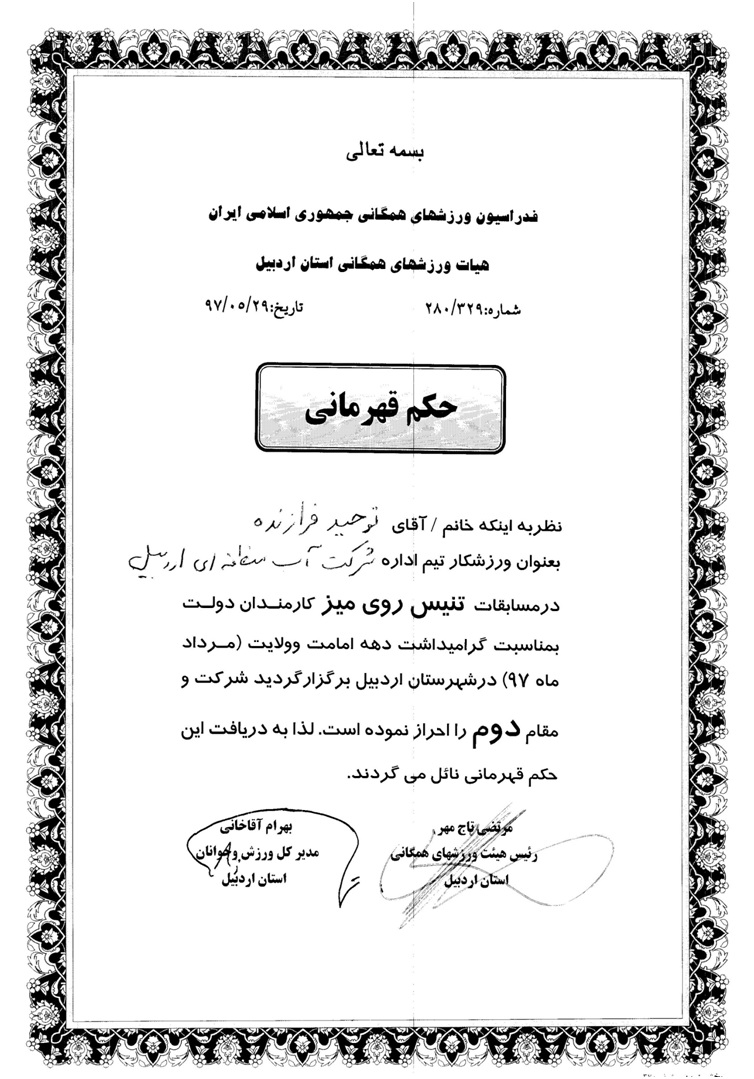 بسمه تعالی
فدراسیون ورزشهای همگانی جمهوری اسلامی ایران
هیات ورزشهای همگانی استان اردبیل
شماره:۲۸۰/۳۲۹ تاریخ:۹۷/۰۵/۲۹
حکم قهرمانی
نظربه اینکه خانم / آقای توحید فرازنده
بعنوان ورزشکار تیم اداره شرکت آب منطقه ای اردبیل
درمسابقات تنیس روی میز کارمندان دولت
بمناسبت گرامیداشت دهه امامت وولایت (مرداد
ماه ۹۷) درشهرستان اردبیل برگزارگردید شرکت و
مقام دوم را احراز نموده است. لذا به دریافت این
حکم قهرمانی نائل می گردند.
مرتضی تاج مهر
رئیس هیئت ورزشهای همگانی
استان اردبیل
بهرام آقاخانی
مدیر کل ورزش وجوانان
استان اردبیل